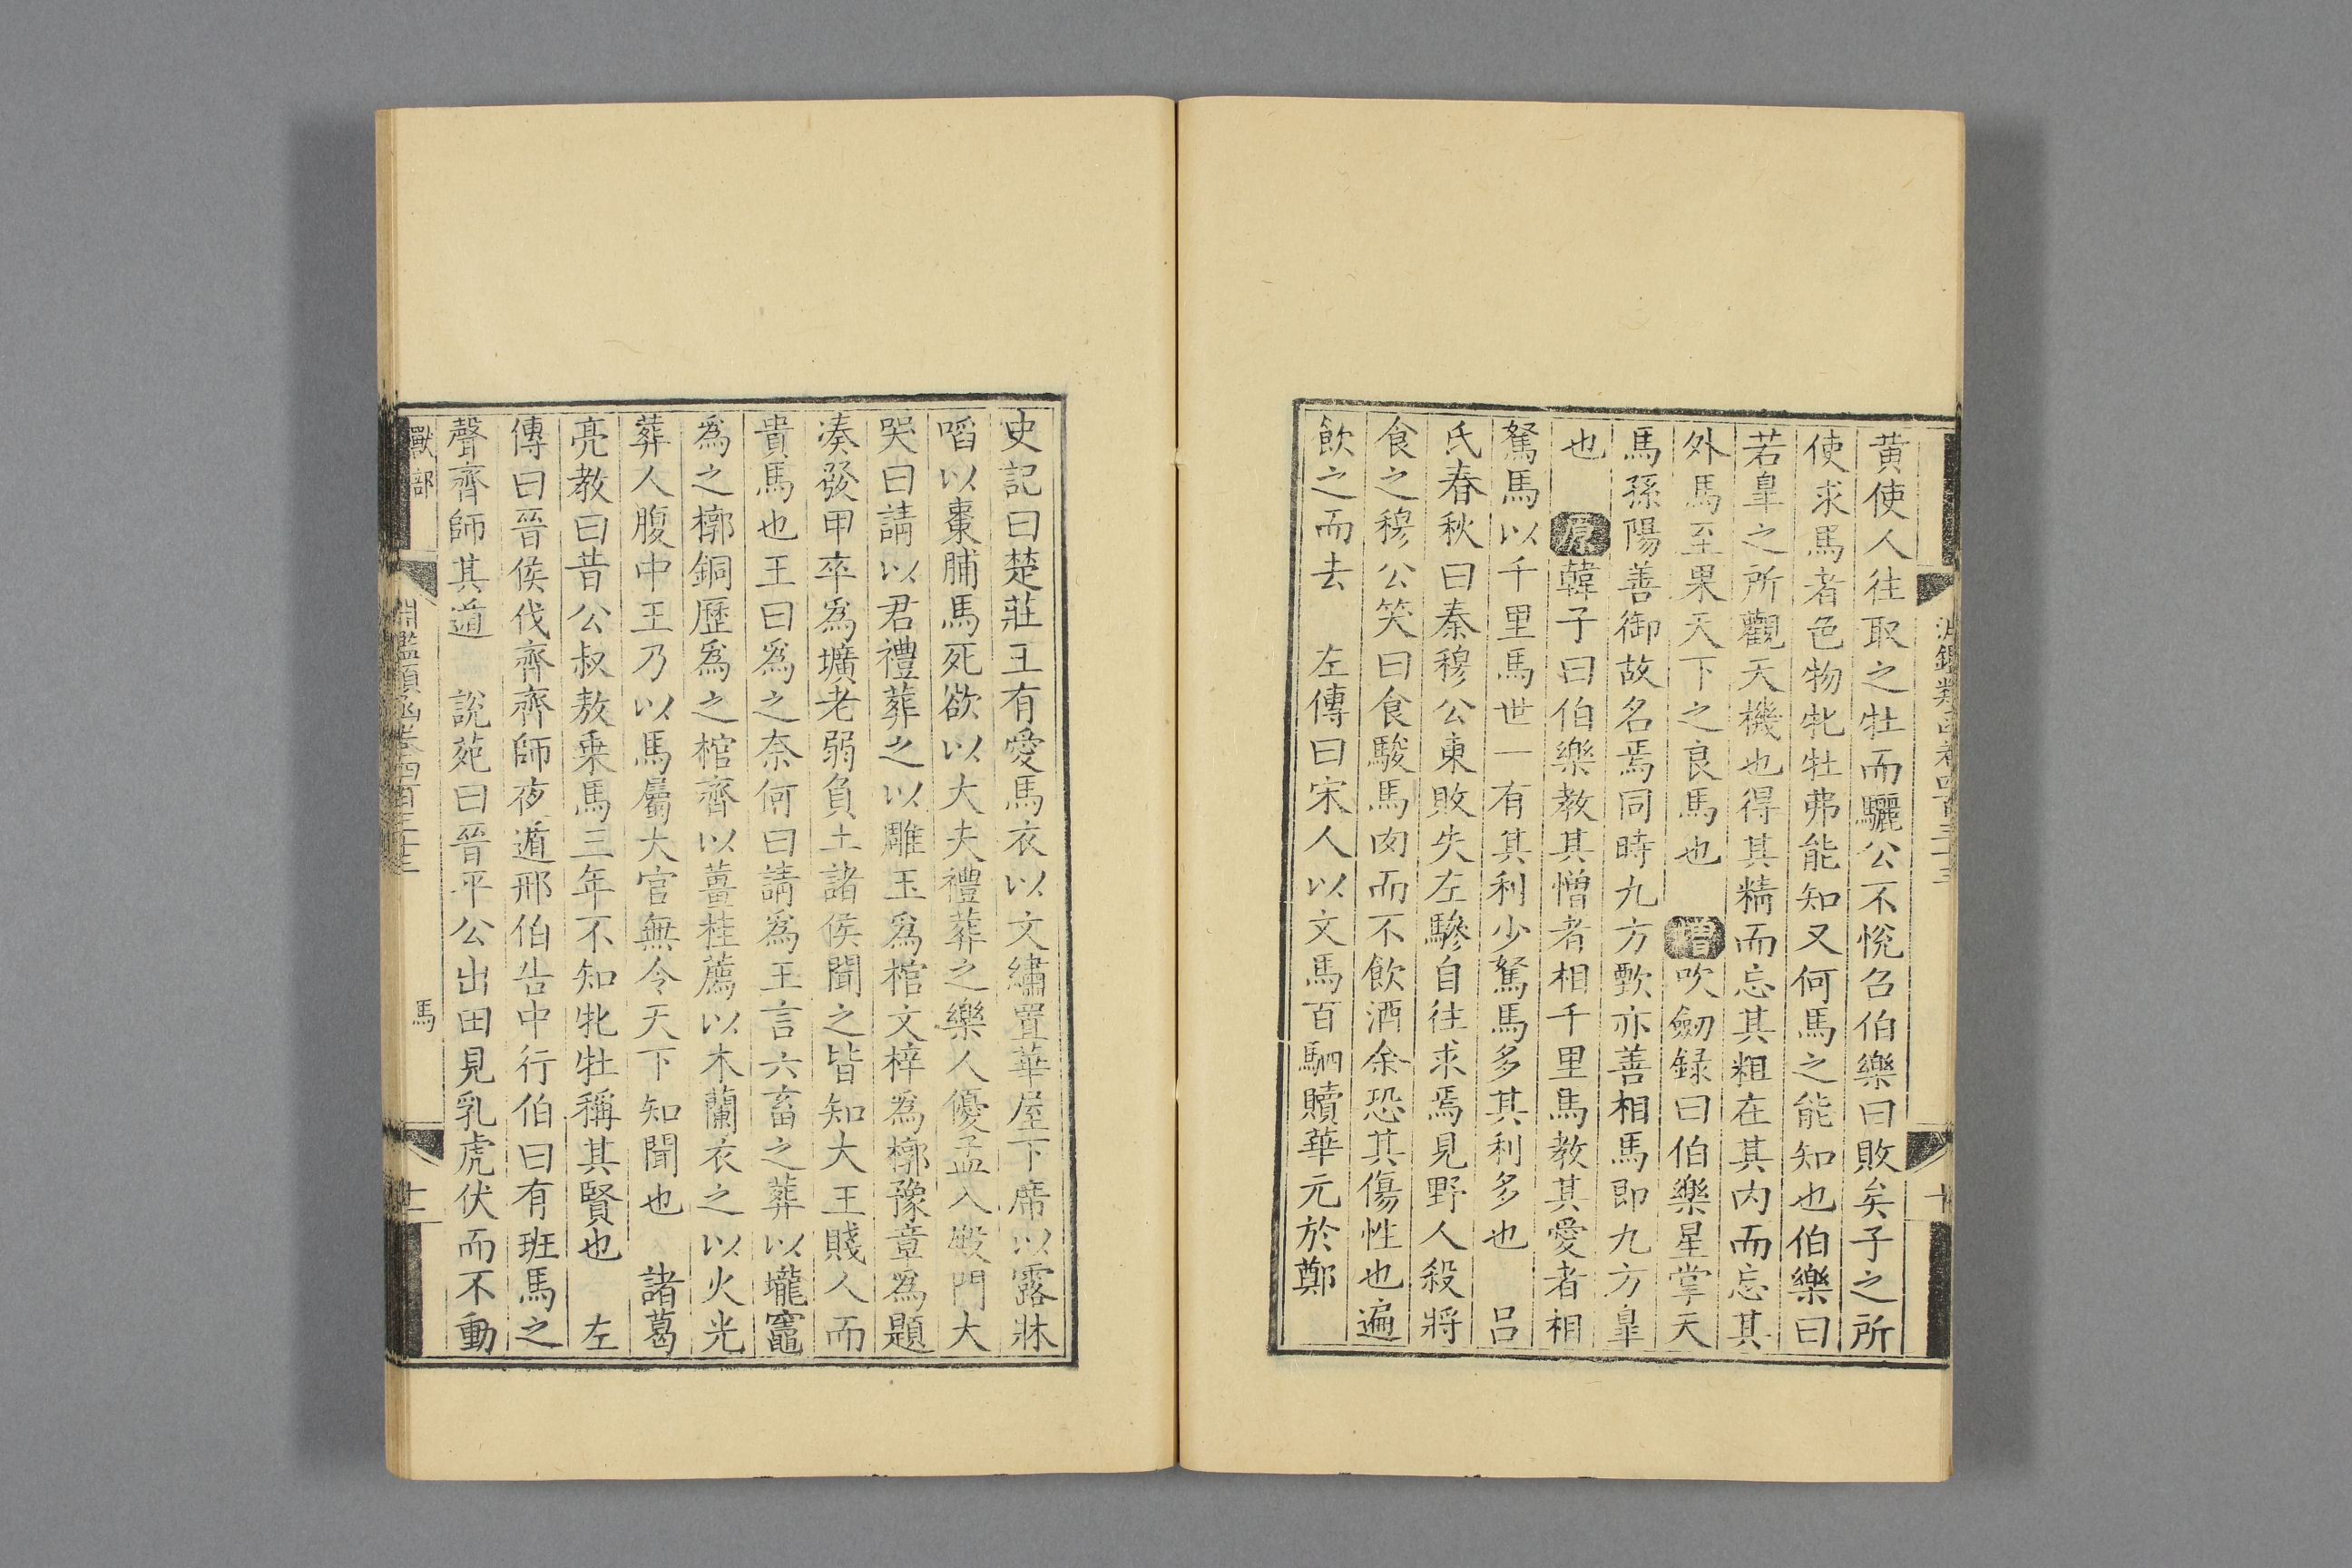 黄使人往取之牡而驪公不悅召伯樂曰敗矣子之所
使求馬者色物牝牡弗能知又何馬之能知也伯樂曰
若臯之所觀天機也得其精而忘其粗在其内而忘其
外馬至果天下之良馬也 增吹劒録曰伯樂星掌天
馬孫陽善御故名焉同時九方歅亦善相馬即九方臯
也 原韓子曰伯樂教其憎者相千里馬教其愛者相
駑馬以千里馬世一有其利少駑馬多其利多也 吕
氏春秋曰秦穆公東敗失左驂自往求焉見野人殺將
食之穆公笑曰食駿馬肉而不飲酒余恐其傷性也遍
飲之而去 左傳曰宋人以文馬百駟贖華元於鄭
史記曰楚莊王有愛馬衣以文繡置華屋下席以露牀
㗖以棗脯馬死欲以大夫禮葬之樂人優孟入殿門大
哭曰請以君禮葬之以雕玉為棺文梓為槨豫章為題
凑發甲卒為壙老弱負土諸侯聞之皆知大王賤人而
貴馬也王曰為之奈何曰請為王言六畜之葬以壠竈
為之槨銅歷為之棺齊以薑桂薦以木蘭衣之以火光
葬人腹中王乃以馬屬大官無令天下知聞也 諸葛
亮教曰昔公叔敖乗馬三年不知牝牡稱其賢也 左
傳曰晉侯伐齊齊師夜遁邢伯告中行伯曰有班馬之
聲齊師其遁 說苑曰晉平公出田見乳虎伏而不動
獸部 淵鑑類函卷四百三十三 馬 十一